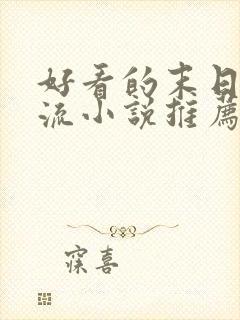 好看的末日
流小說推薦
寐喜